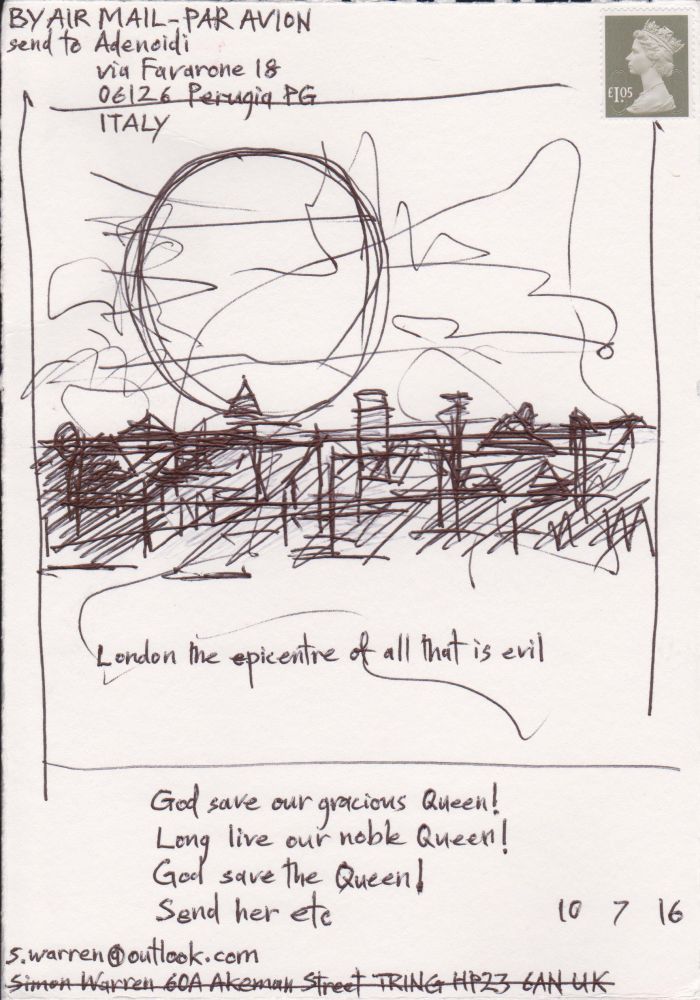 BY AIR MAIL-PAR AVION
send to Adenoidi
via Favarone 18
06126 Perugia PG
ITALY
£1.05
London the epicentre of all that is evil
God save our gracious Queen!
Long live our noble Queen!
God save the Queen!
Send her etc
10 7 16
s.warren@outlook.com
Simon Warren 60A Akeman Street TRING HP23 6AN UK